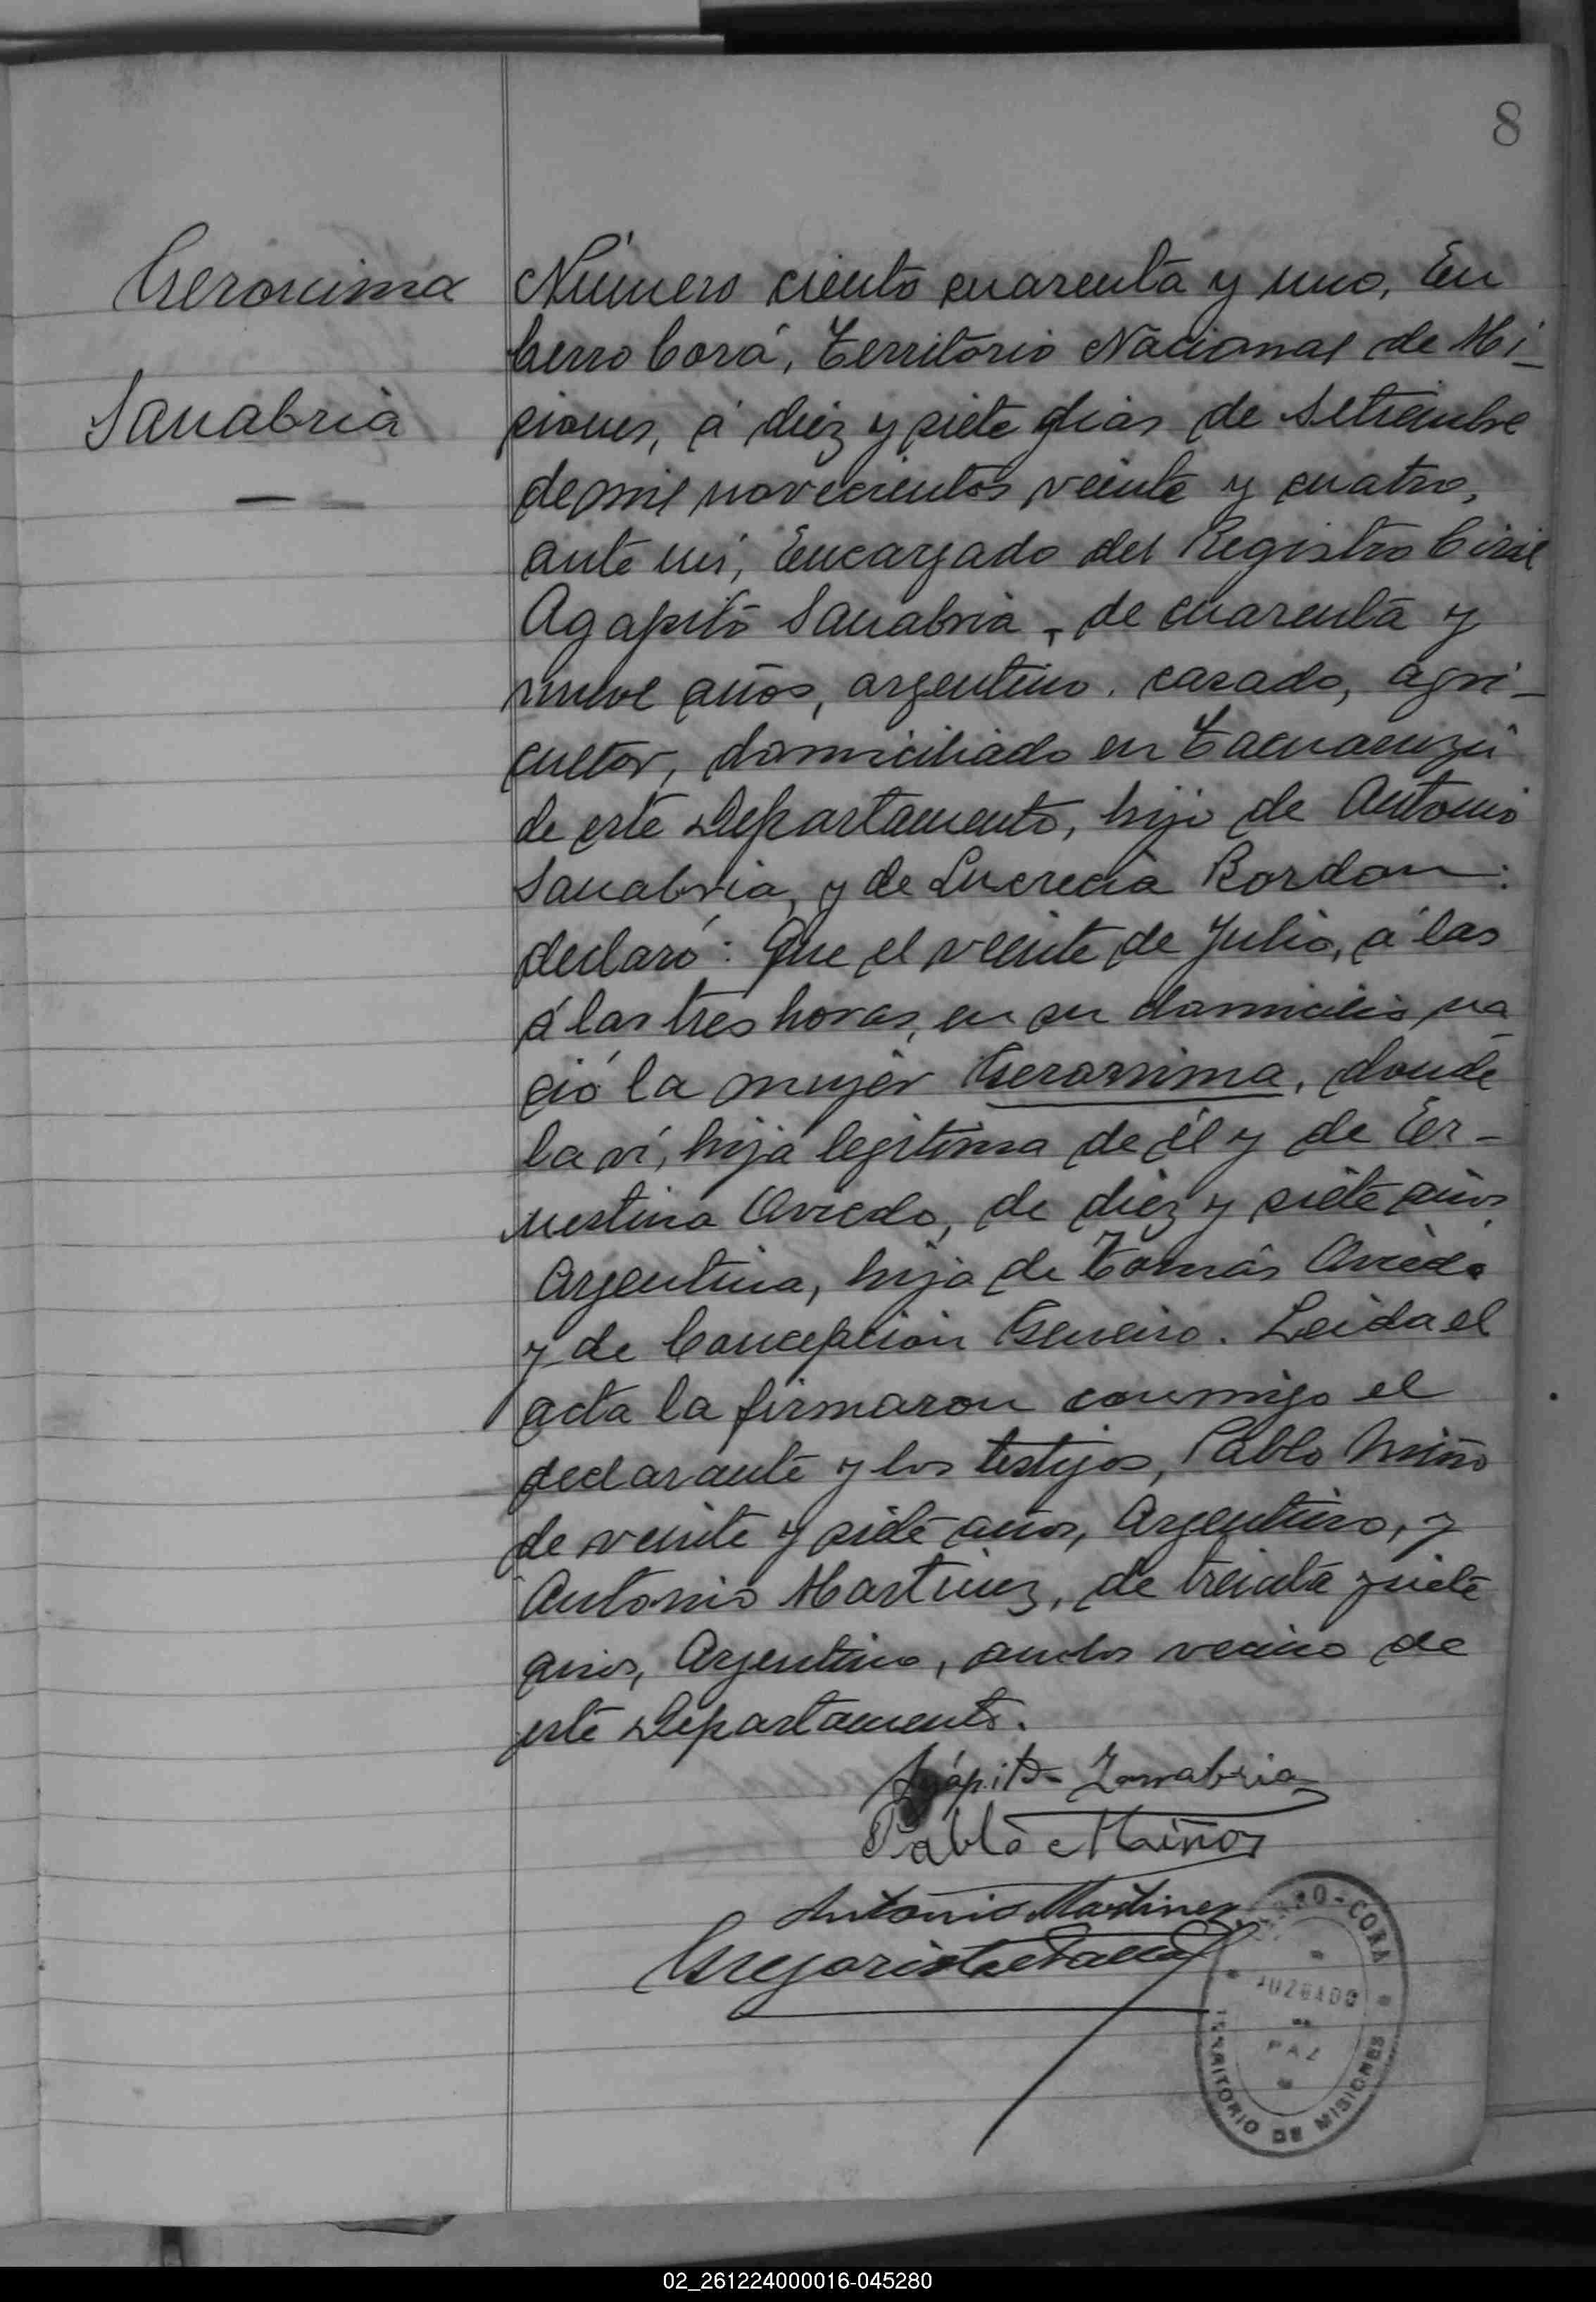 8
Geronima
Sanabria
Número ciento cuarenta y uno, En
Cerro Corá, Territorio Nacional de Mi-
siones, á diez y siete dias de Setiembre
de mil novecientos veinte y cuatro,
ante mí, Encargado del Registro Civil
Agapito Sanabria, de cuarenta y
nueve años, argentino, casado, agri-
cultor, domiciliado en
de este Departamento, hijo de Antonio
Sanabria, y de Lucrecia Bordon:
declaró: Que el veinte de Julio, á las
á las tres horas, en su domicilio na
ció la mujer Geronima, donde
la ví, hija legitima de él y de Er-
nestina Oviedo, de diez y siete años
Argentina, hija de Tomás Oviedo
y de Concepcion Geneiro. Leida el
acta la firmaron conmigo el
declarante y los testigos, Pablo Miño
de veinte y siete años, Argentino, y
Antonio Martinez, de treinta y siete
años, Argentino, ambos vecino de
este Departamento.
Agápito Zanabria
Pablo Miño
Antonio Martinez
Gregorio
CERRO-CORA
JUZGADO
PAZ
TERRITORIO DE MISIONES
02_261224000016-045280